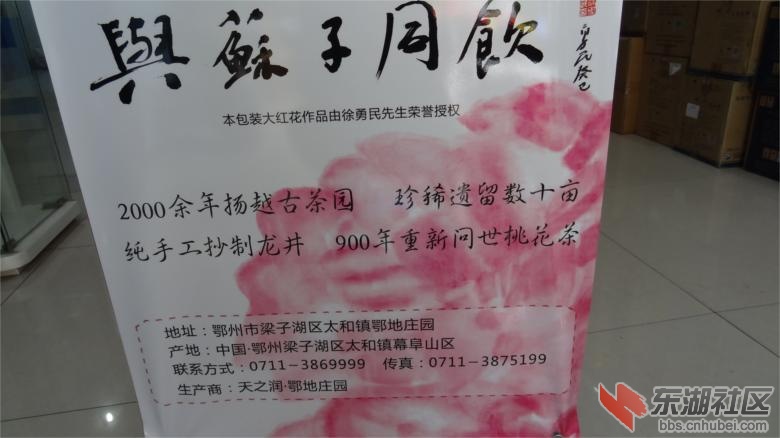 與蘇子同飲
本包装大红花作品由徐勇民先生荣誉授权
2000余年扬越古茶园 珍稀遗留数十亩
纯手工抄制龙井 900年重新问世桃花茶
地址：鄂州市梁子湖区太和镇鄂地庄园
产地：中国·鄂州梁子湖区太和镇幕阜山区
联系方式：0711－3869999 传真：0711－3875199
生产商：天之润·鄂地庄园
东湖社区
bbs.cnhubei.com